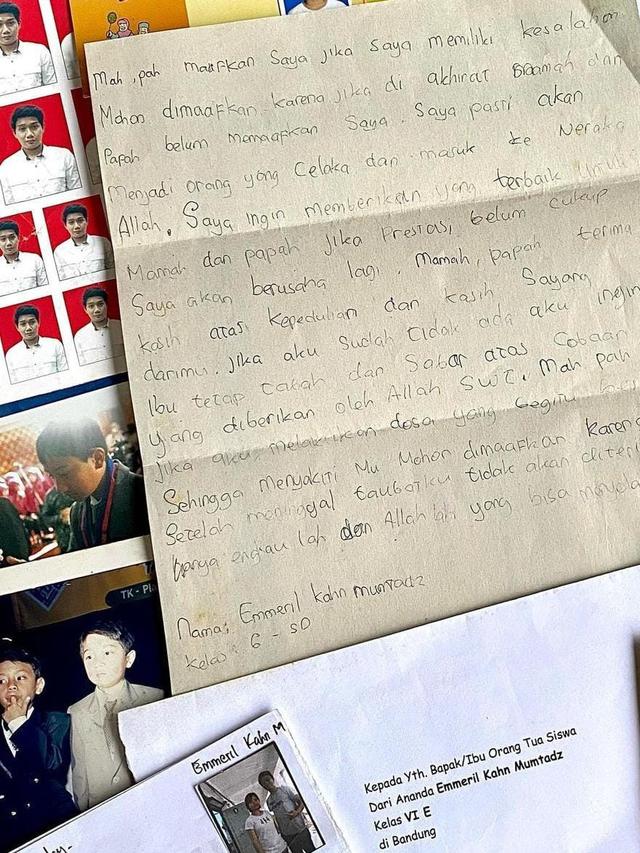 Mah, pah maafkan Saya jika Saya memiliki kesalahan
Mohon dimaafkan karena jika di akhirat mamah dan
Papah belum memaafkan Saya. Saya pasti akan
menjadi orang yang Celaka dan masuk ke Neraka
Allah. Saya ingin memberikan yang terbaik untuk
Mamah dan papah jika Prestasi belum cukup
Saya akan berusaha lagi. Mamah, papah terima
kasih atas kepedulian dan kasih Sayang
darimu. jika aku Sudah tidak ada aku ingin
Ibu tetap tabah dan Sabar atas Cobaan
yang diberikan oleh Allah SWT. Mah pah
jika aku melakukan dosa yang begitu
Sehingga menyakiti Mu Mohon dimaafkan karena
Setelah meninggal taubatku tidak akan
hanya engkau lah dan Allah lah yang bisa
Nama: Emmeril Kahn mumtadz
kelas: 6 - SD
TK -
Emmeril Kahn M
Kepada Yth. Bapak/Ibu Orang Tua Siswa
Dari Ananda Emmeril Kahn Mumtadz
Kelas VI E
di Bandung